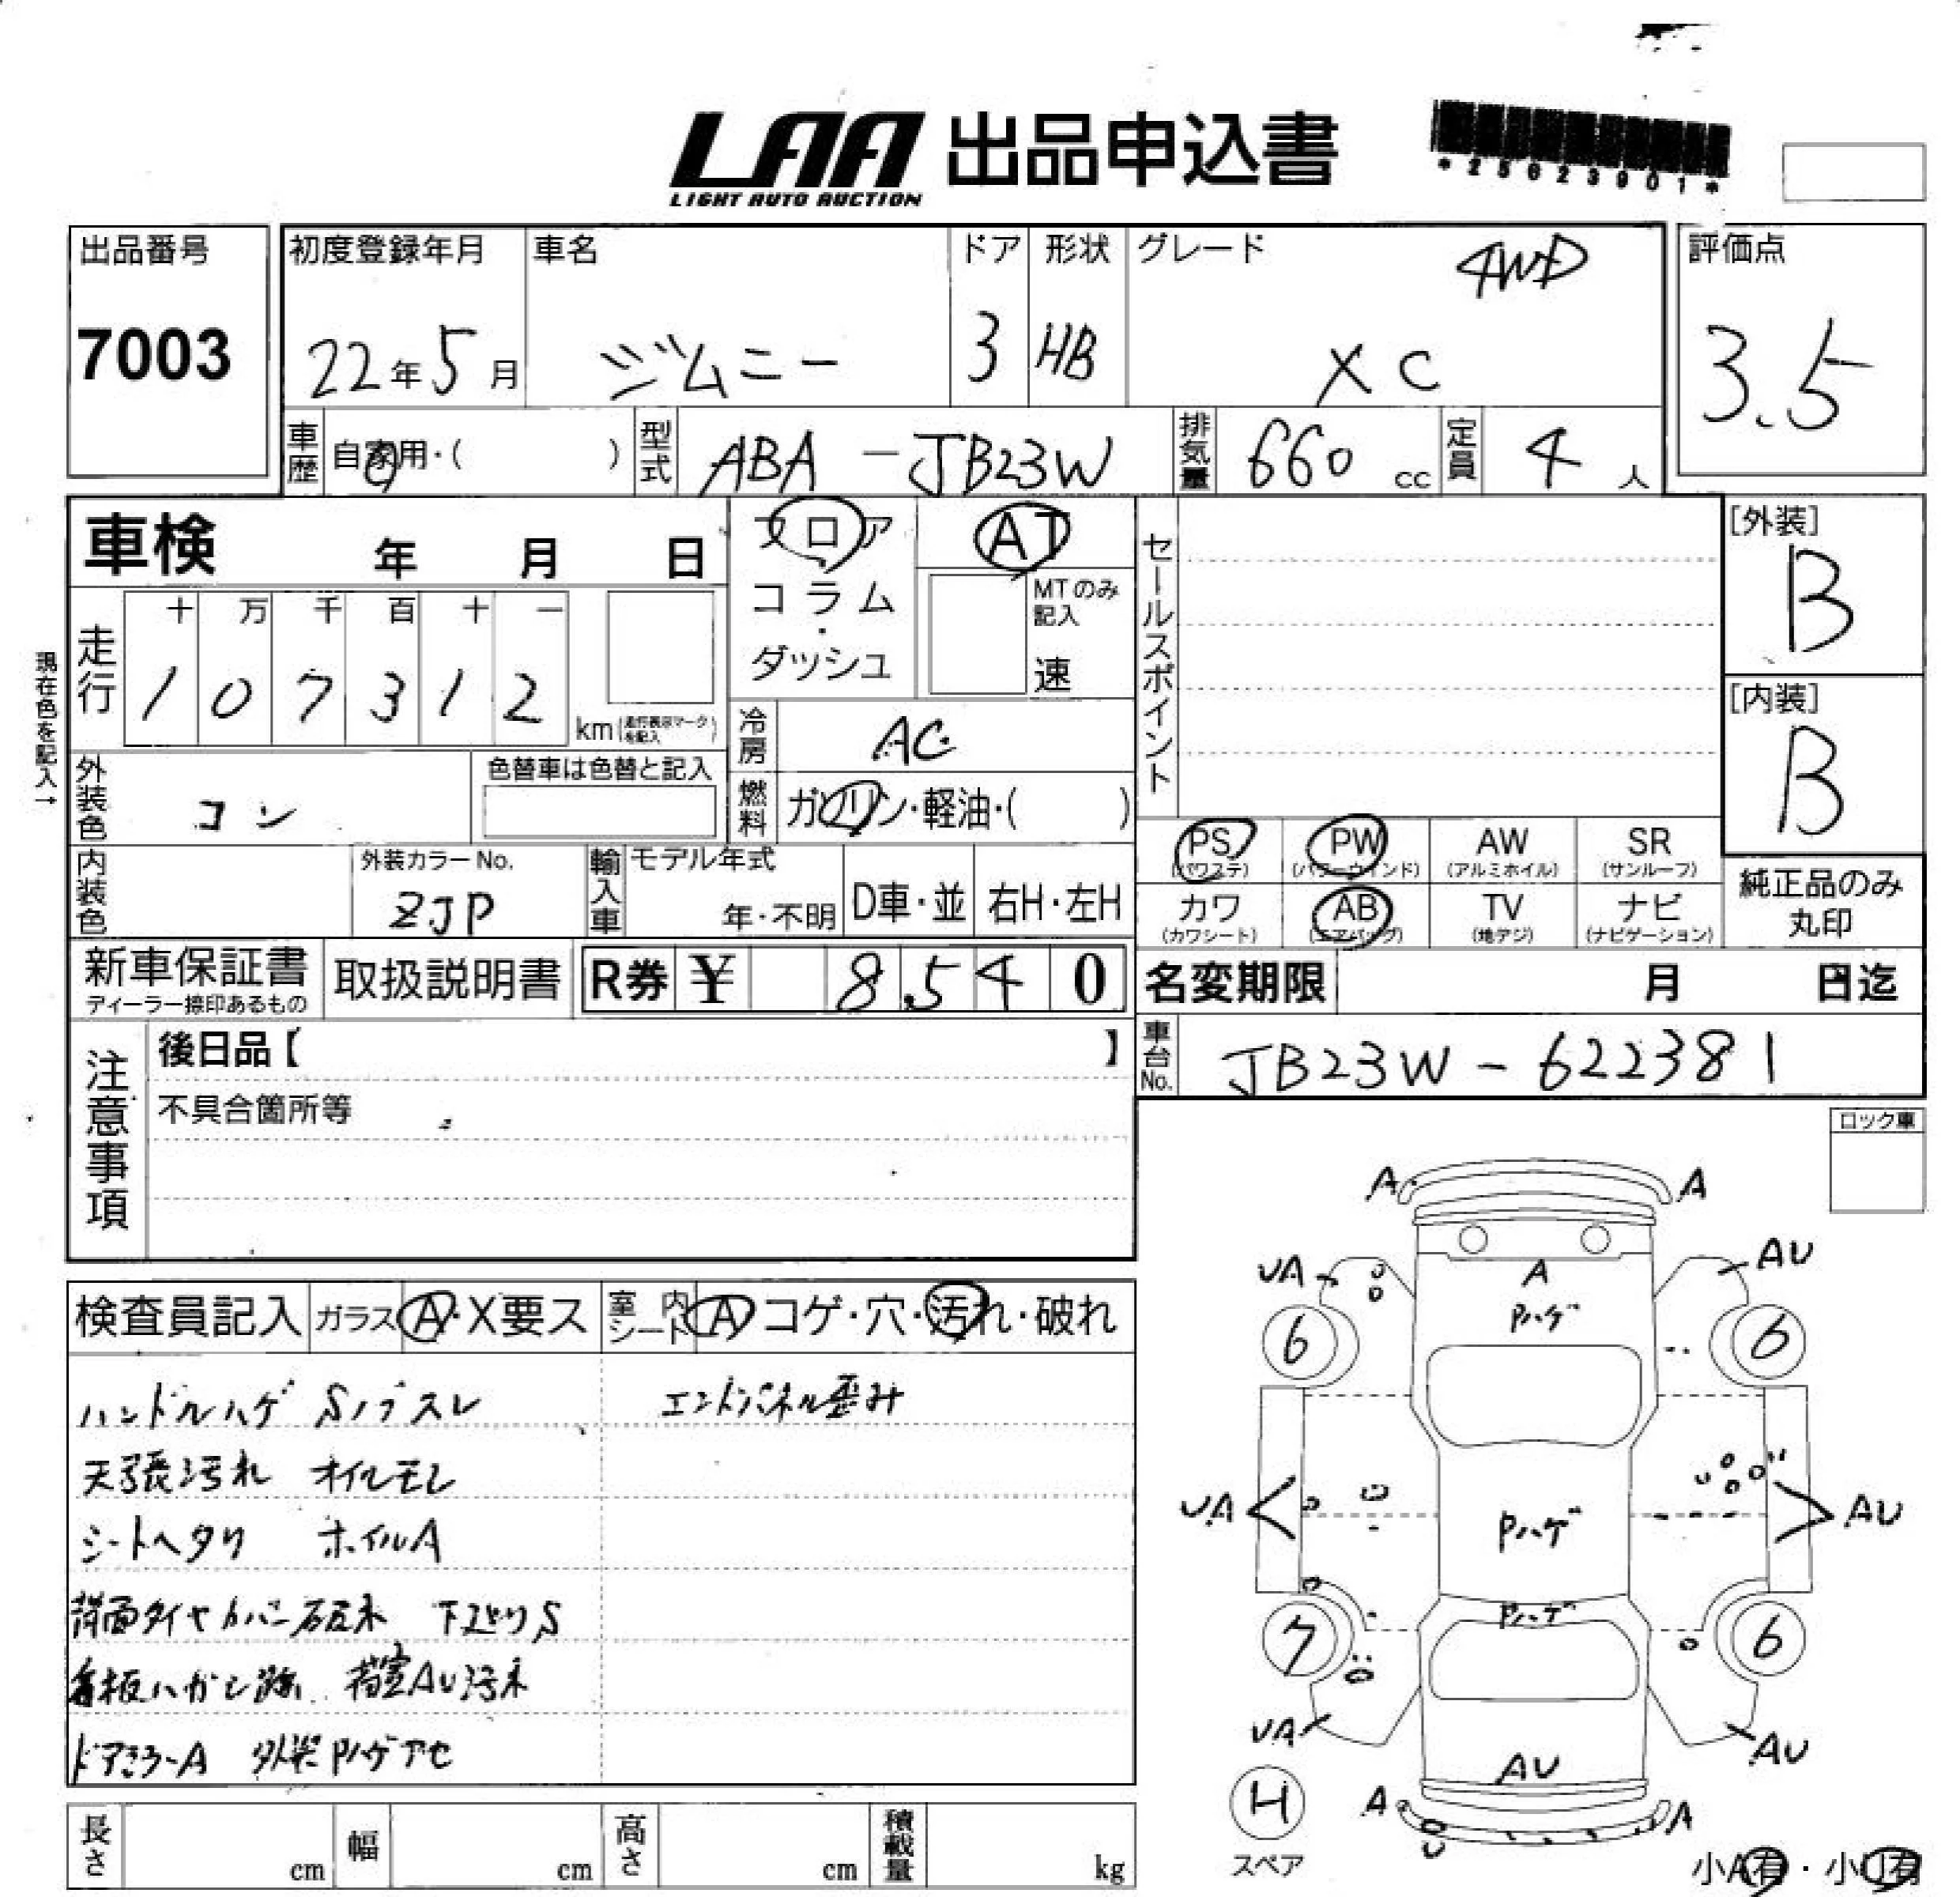 LAA 出品申込書
LIGHT AUTO AUCTION
*25623901*
出品番号 初度登録年月 車名 ドア 形状 グレード 4WD 評価点
7003 22年5月 ジムニー 3 HB XC 3.5
車歴 自家用・( ) 型式 ABA-JB23W 排気量 660 cc 定員 4 人
車検 年 月 日 フロア AT セールスポイント [外装]
B
コラム・ MTのみ記入
ダッシュ 速
現在色を記入→
走行 十 万 千 百 十 一
1 0 7 3 1 2 km(走行表示マークを記入)
[内装]
B
冷房 AC
外装色 コン 色替車は色替と記入
燃料 ガソリン・軽油・( )
PS PW AW SR
(パワステ) (パワーウインド) (アルミホイル) (サンルーフ)
内装色 外装カラーNo. ZJP 輸入車 モデル年式 年・不明 D車・並 右H・左H
カワ AB TV ナビ 純正品のみ
(カワシート) (エアバッグ) (地デジ) (ナビゲーション) 丸印
新車保証書 取扱説明書 R券 ¥ 8,540 名変期限 月 日迄
ディーラー捺印あるもの
車台No. JB23W-622381
注意事項 後日品【 】
不具合箇所等
ロック車
検査員記入 ガラス A・X要ス 室内シート A コゲ・穴・汚れ・破れ
ハンドルハゲ Sノブスレ エンドパネル歪み
天張汚れ オイルモレ
シートヘタリ ホイルA
背面タイヤカバー破れ 下廻りS
看板ハガシ跡 荷室AU汚れ
ドアミラーA 外装Pハゲアセ
A A
UA AU
A
Pハゲ
6 6
UA Pハゲ AU
Pハゲ
7 6
UA AU
AU
H A A
スペア
小A有・小U有
長さ cm 幅 cm 高さ cm 積載量 kg